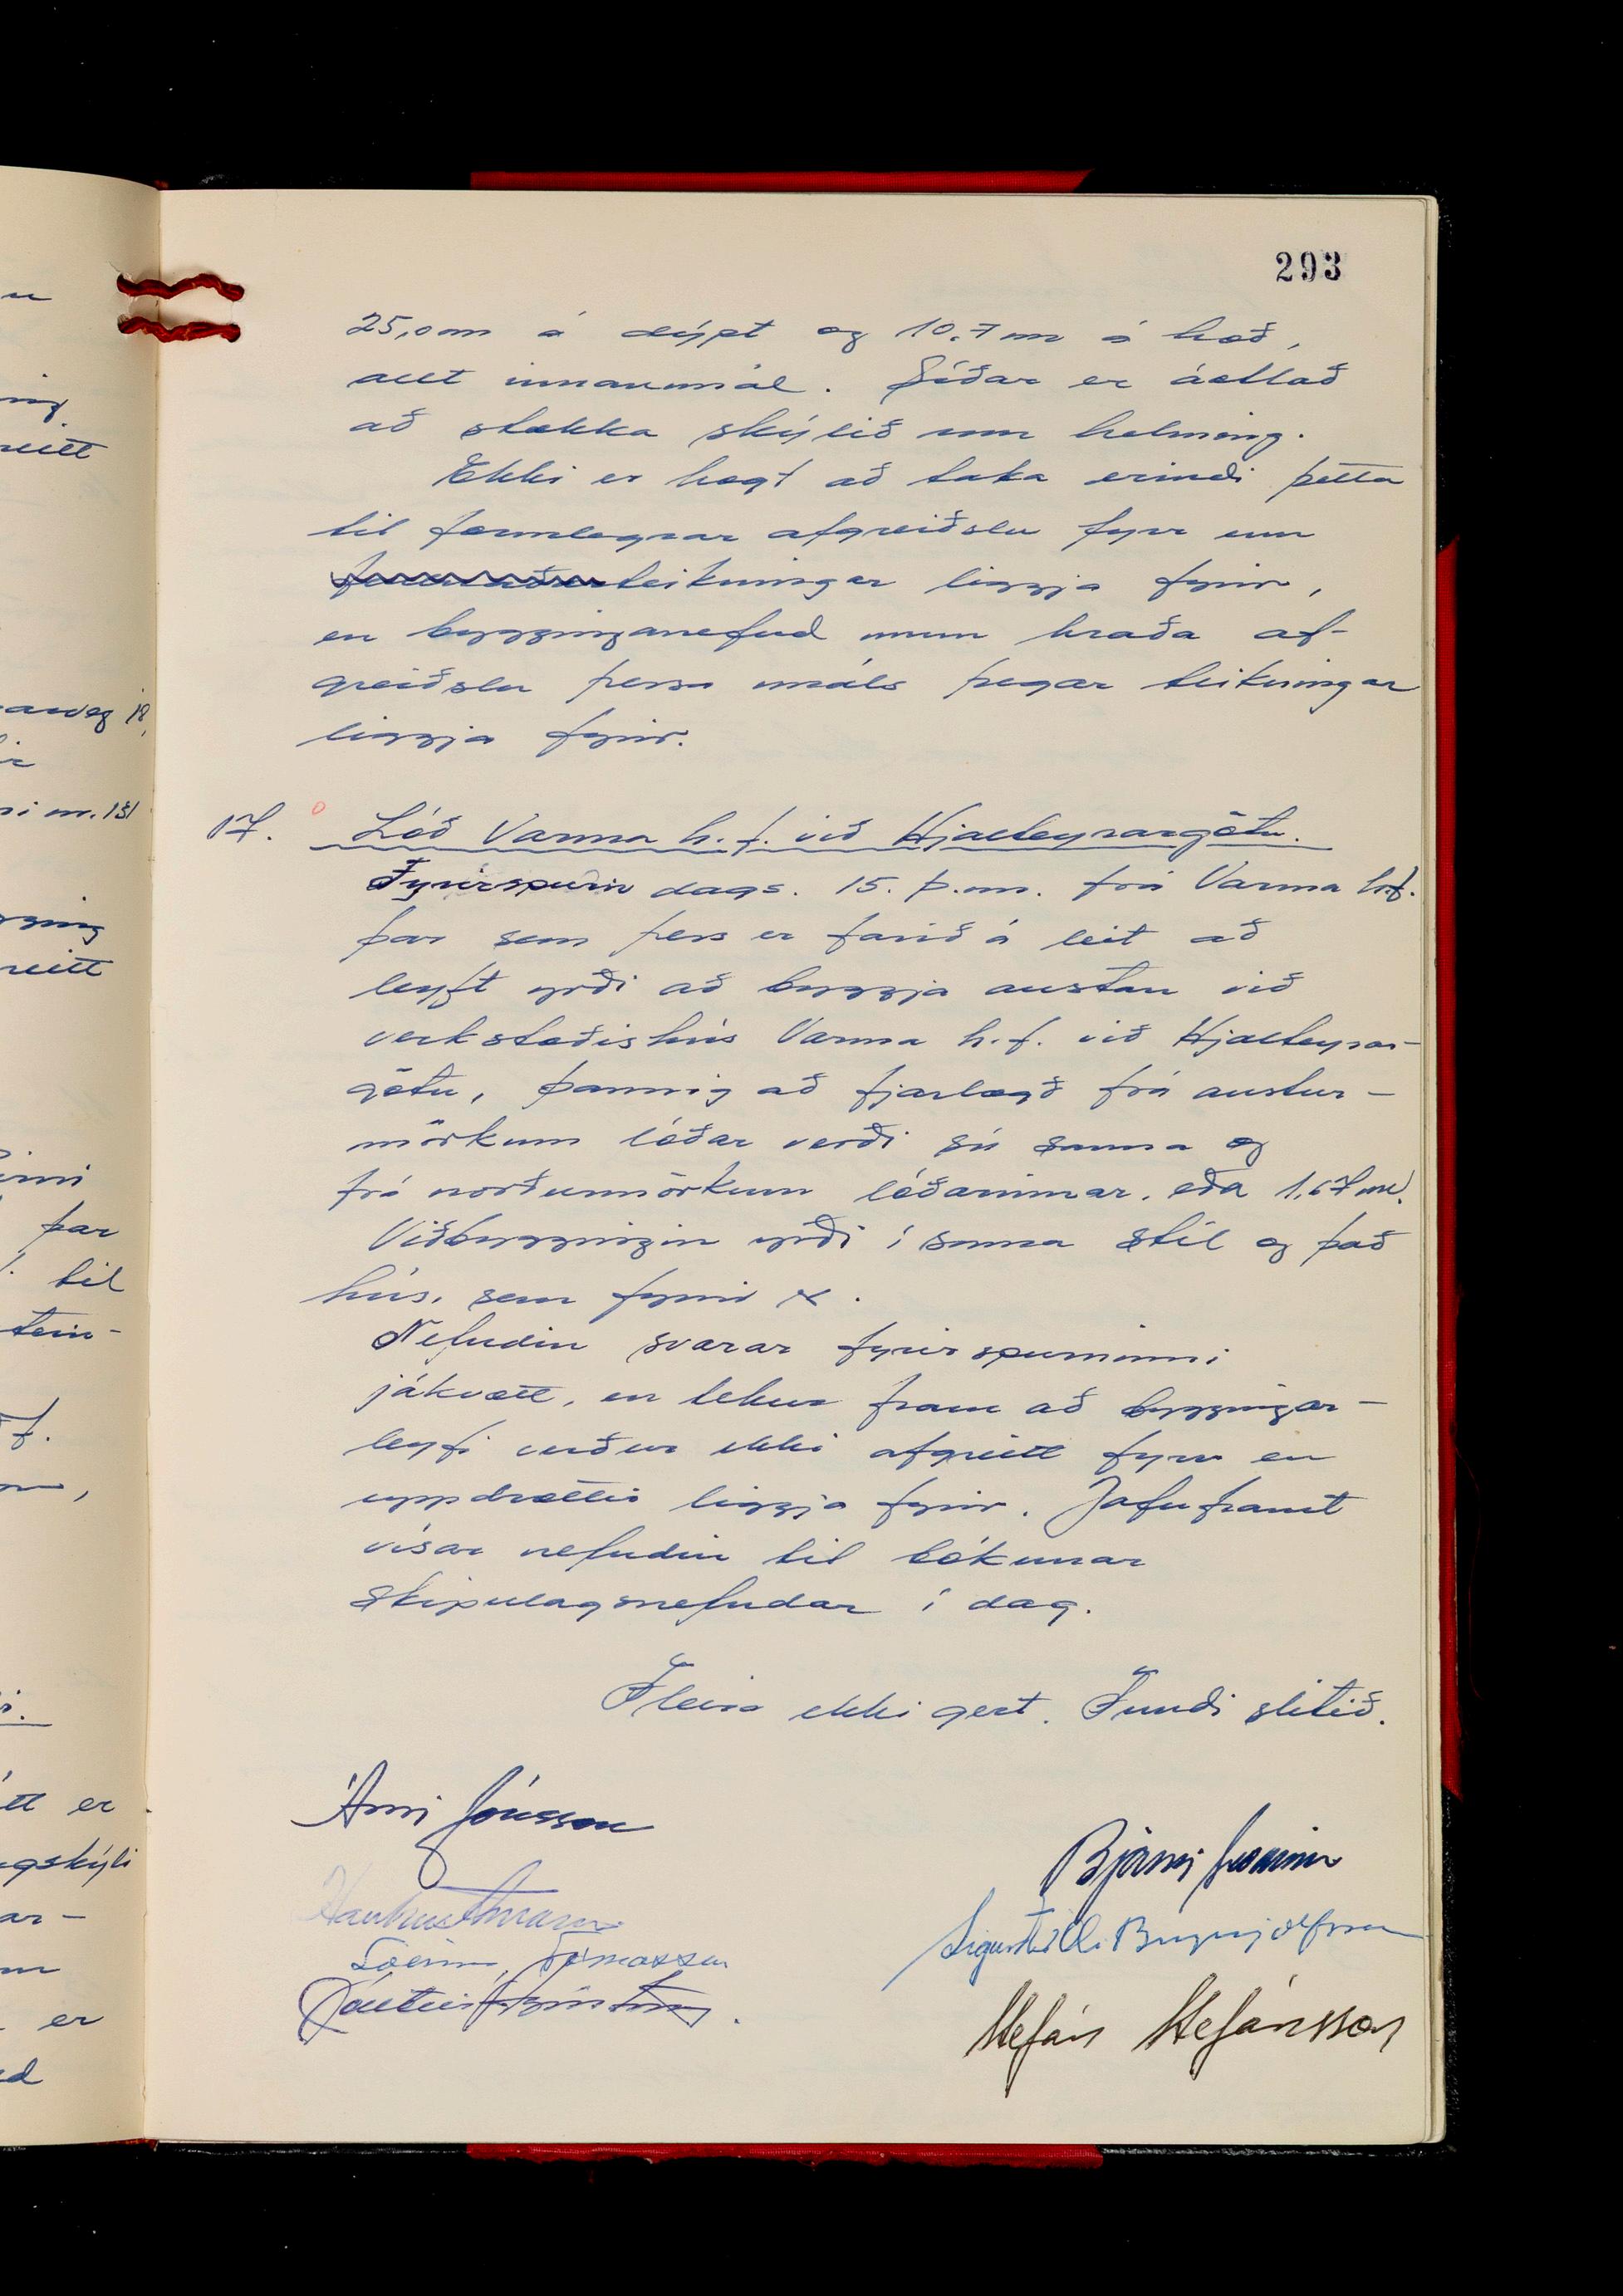 293
25,0 m á dýpt og 10.7 m á hæð,
allt innanmál. Síðar er áætlað
að stækka skýlið um helming.
Ekki er hægt að taka erindi þetta
til formlegrar afgreiðslu fyrr enn
teikningar liggja fyrir,
en bygginganefnd mun hraða af-
greiðslu þessa máls þegar teikningar
liggja fyrir.
17. Lóð Varma h.f. við Hjalteyrargötu.
Fyrirspurn dags. 15. þ.m. frá Varma h.f.
þar sem þess er farið á leit að
leyft yrði að byggja austan við
verkstæðishús Varma h.f. við Hjalteyrar-
götu, þannig að fjarlægð frá austur-
mörkum lóðar verði sú sama og
frá norðurmörkum lóðarinnar, eða 1,67 m.
Viðbyggingin yrði í sama stíl og það
hús, sem fyrir er.
Nefndin svarar fyrirspurninni
jákvætt, en tekur fram að byggingar-
leyfi verður ekki afgreitt fyrr en
uppdrættir liggja fyrir. Jafnframt
vísar nefndin til bókunar
skipulagsnefndar í dag.
Fleira ekki gert. Fundi slitið.
Árni Jónsson
Bjarni
Tómasson
Stefán Stefánsson